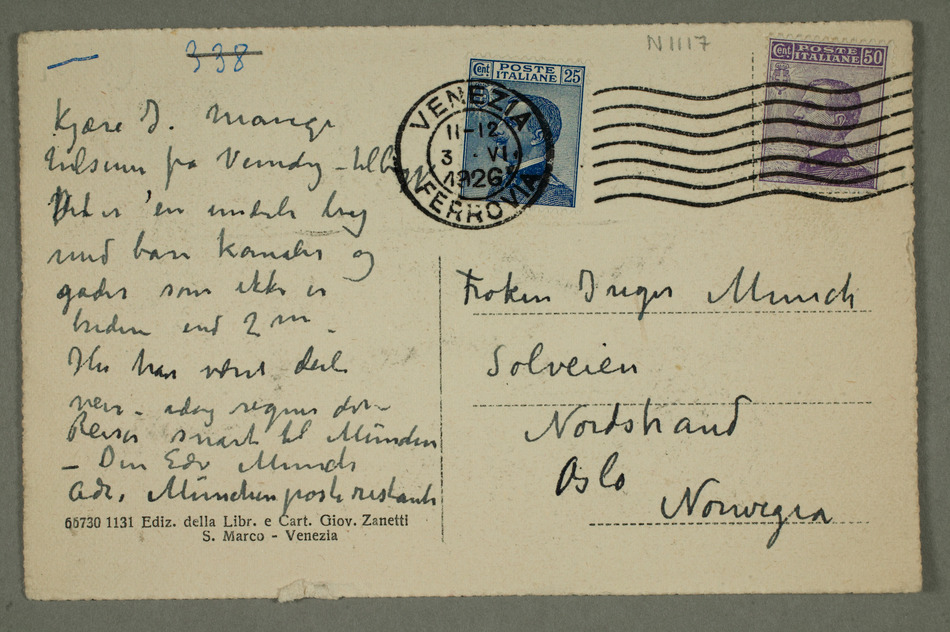 338
N 1117
Cent POSTE ITALIANE 25
Cent POSTE ITALIANE 50
VENEZIA
11-12
3 · VI
1926
FERROVIA
Kjære I. Mange
hilsener fra Venedig –
Det er en underlig by
med bare kanaler og
gader som ikke er
bredere end 2 m –
Her har været deilig
veir – idag regner det –
Reiser snart til München
– Din Edv Munch
Adr. München poste restante
66730 1131 Ediz. della Libr. e Cart. Giov. Zanetti
S. Marco - Venezia
Frøken Inger Munch
Solveien
Nordstrand
Oslo
Norwegia